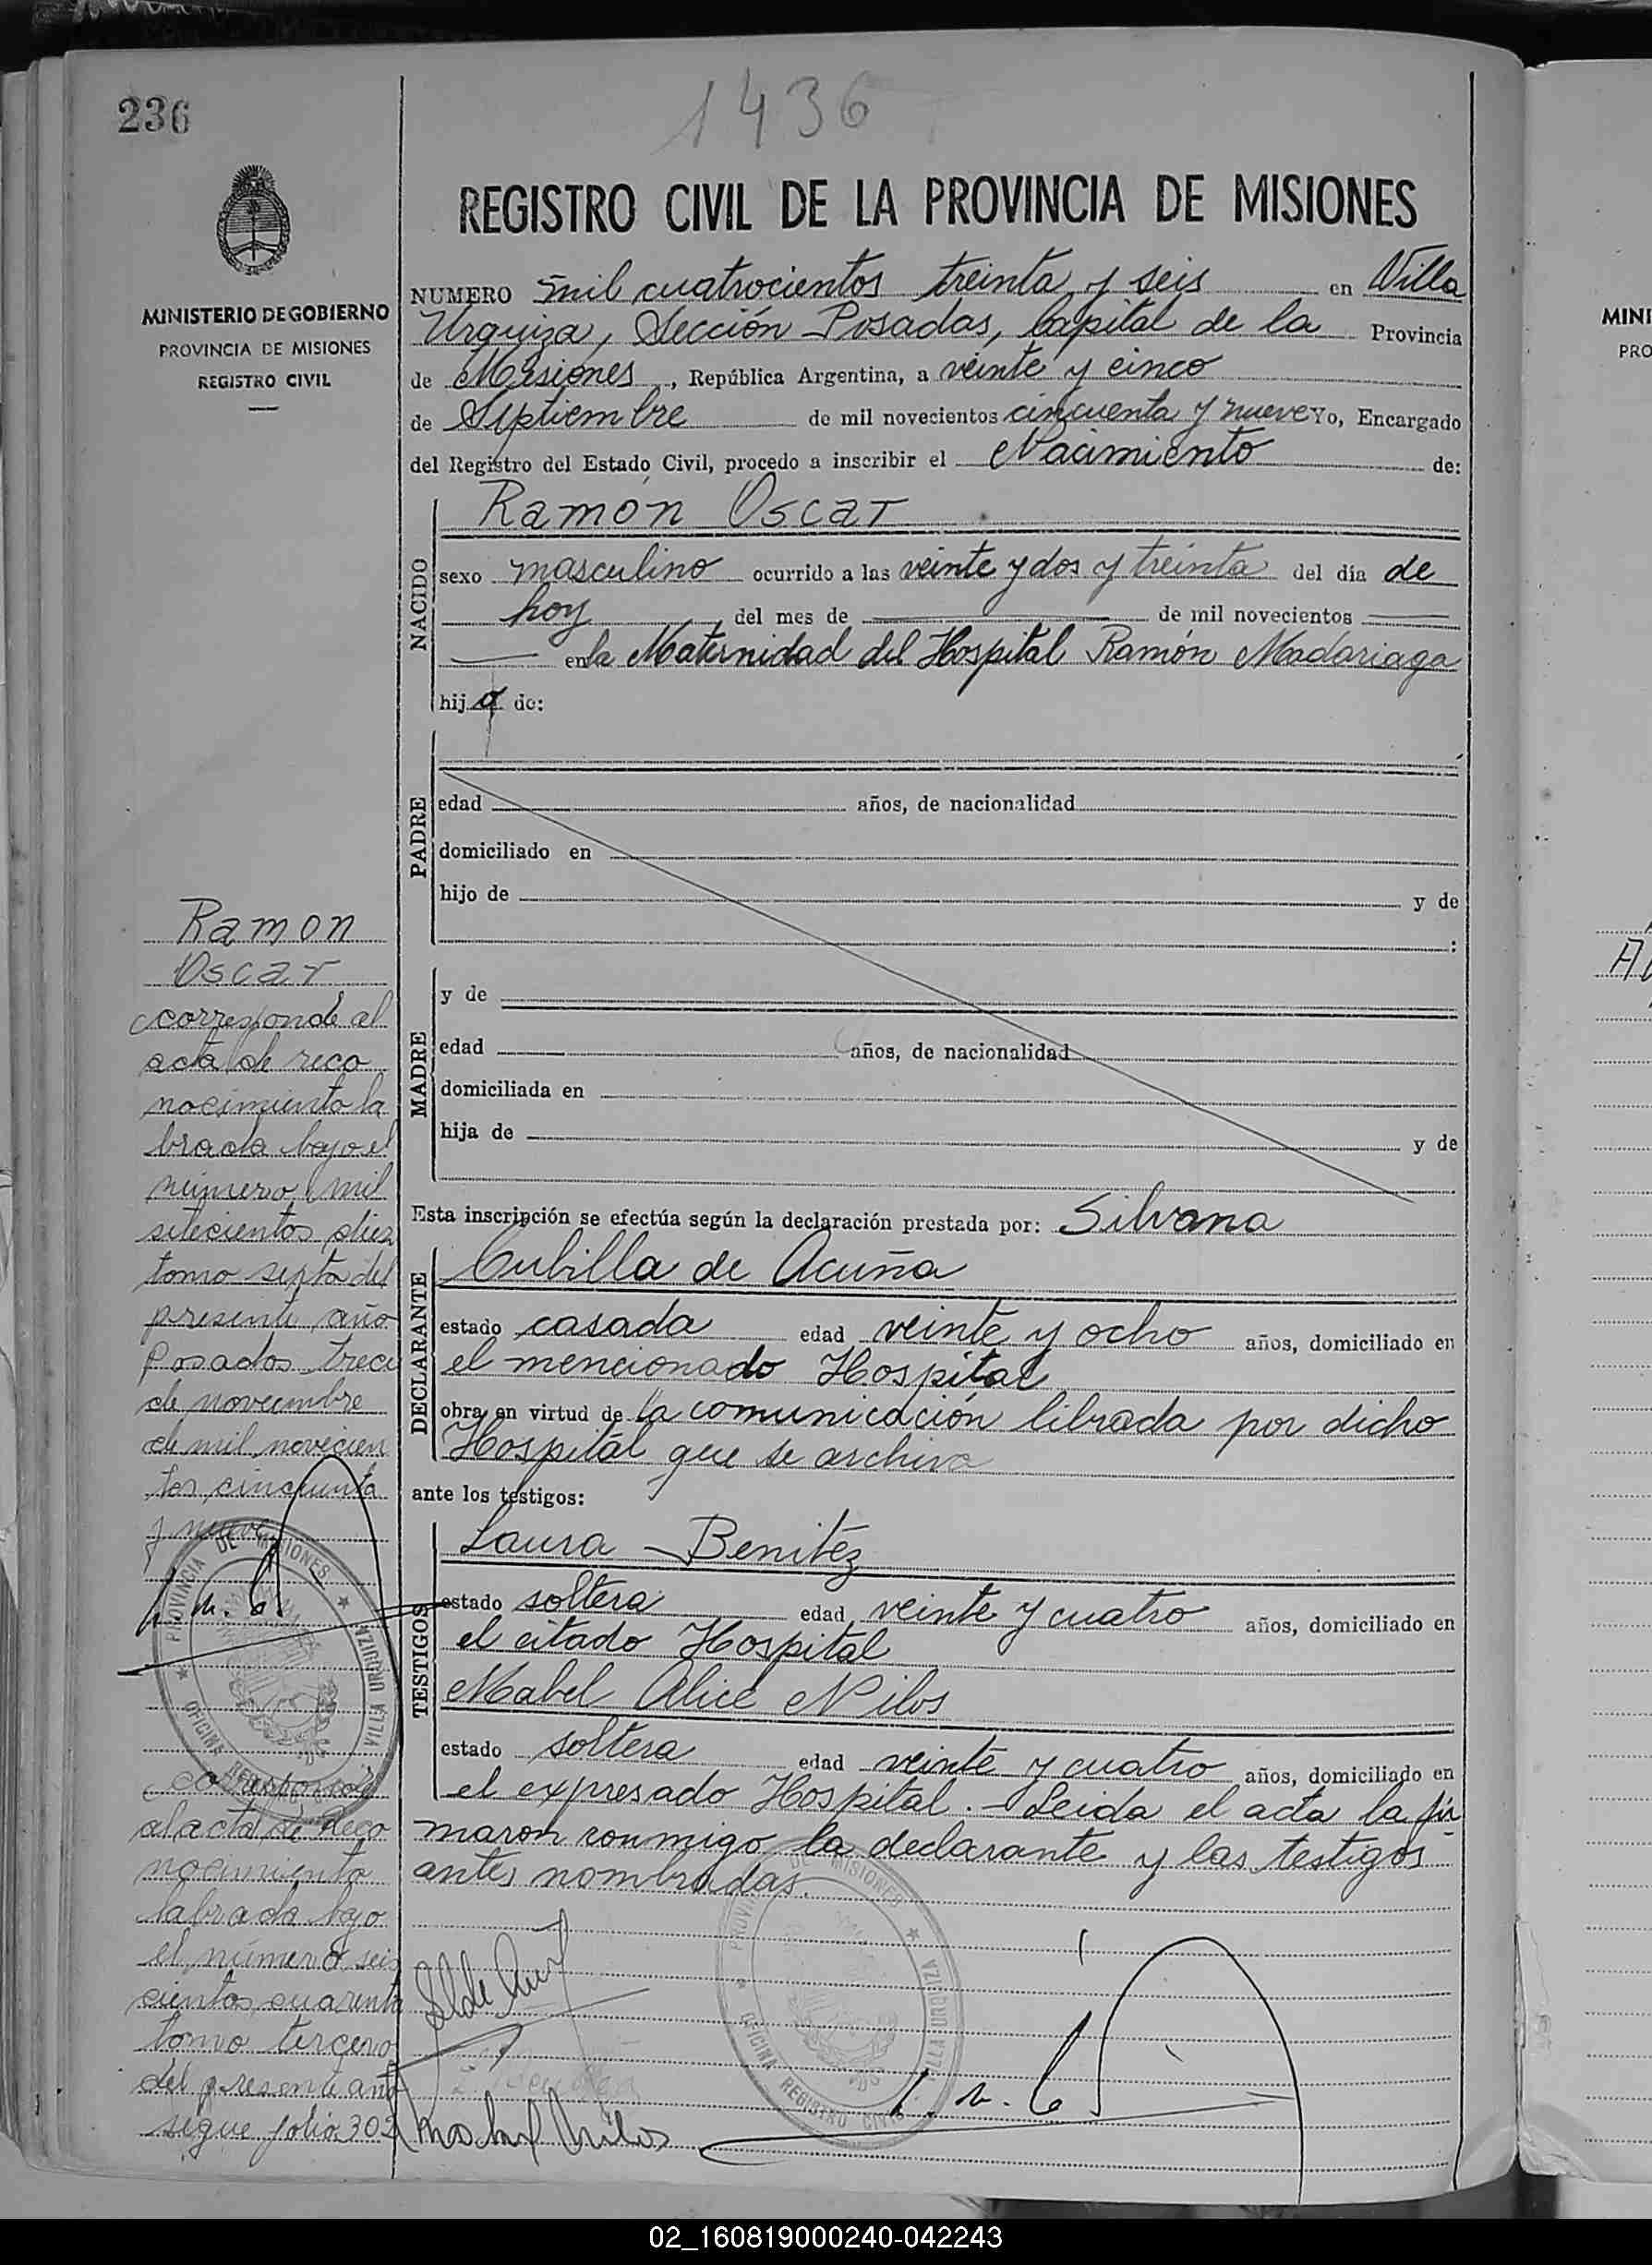 236
1436
MINISTERIO DE GOBIERNO
PROVINCIA DE MISIONES
REGISTRO CIVIL
REGISTRO CIVIL DE LA PROVINCIA DE MISIONES
NUMERO mil cuatrocientos treinta y seis en Villa
Urquiza, Sección Posadas, Capital de la Provincia
de Misiones, República Argentina, a veinte y cinco
de Septiembre de mil novecientos cincuenta y nueve Yo, Encargado
del Registro del Estado Civil, procedo a inscribir el Nacimiento de:
NACIDO
Ramón Oscar
sexo masculino ocurrido a las veinte y dos y treinta del día de
hoy del mes de de mil novecientos
en la Maternidad del Hospital Ramón Madariaga
hijo de:
PADRE
edad años, de nacionalidad
domiciliado en
hijo de y de
:
MADRE
y de
edad años, de nacionalidad
domiciliada en
hija de y de
Esta inscripción se efectúa según la declaración prestada por: Silvana
DECLARANTE
Cubilla de Acuña
estado casada edad veinte y ocho años, domiciliado en
el mencionado Hospital
obra en virtud de la comunicación librada por dicho
Hospital que se archiva
ante los testigos:
TESTIGOS
Laura Benitez
estado soltera edad veinte y cuatro años, domiciliado en
el citado Hospital
Mabel Alice Nilos
estado soltera edad veinte y cuatro años, domiciliado en
el expresado Hospital. - Leida el acta la fir
maron conmigo la declarante y las testigos
antes nombradas.
Ramon
Oscar
corresponde al
acta de reco
nocimiento la
brada bajo el
número mil
setecientos diez
tomo sexto del
presente año
Posadas trece
de noviembre
de mil novecien
tos cincuenta
y nueve
PROVINCIA DE MISIONES
OFICINA REGISTRO CIVIL
VILLA URQUIZA
corresponde
al acta de Reco
nocimiento
labrada bajo
el número seis
cientos cuarenta
tomo tercero
del presente año
sigue folio 302
PROVINCIA DE MISIONES
OFICINA REGISTRO CIVIL
VILLA URQUIZA
MINI
PRO
02_160819000240-042243